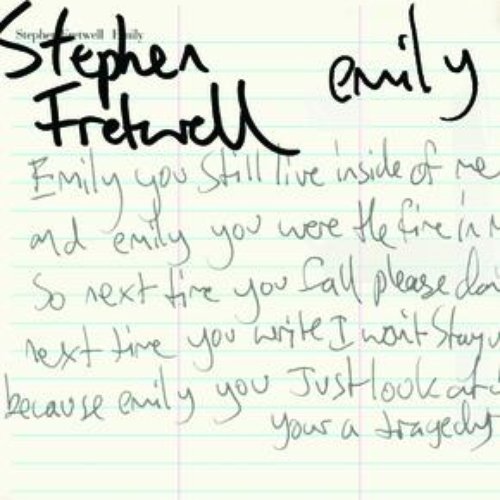 Stephen Fretwell Emily
Stephen emily
Fretwell
Emily you still live inside of me
and emily you were the fire in
So next time you fall please
next time you write I won't stay
because emily you Just look at
your a tragedy